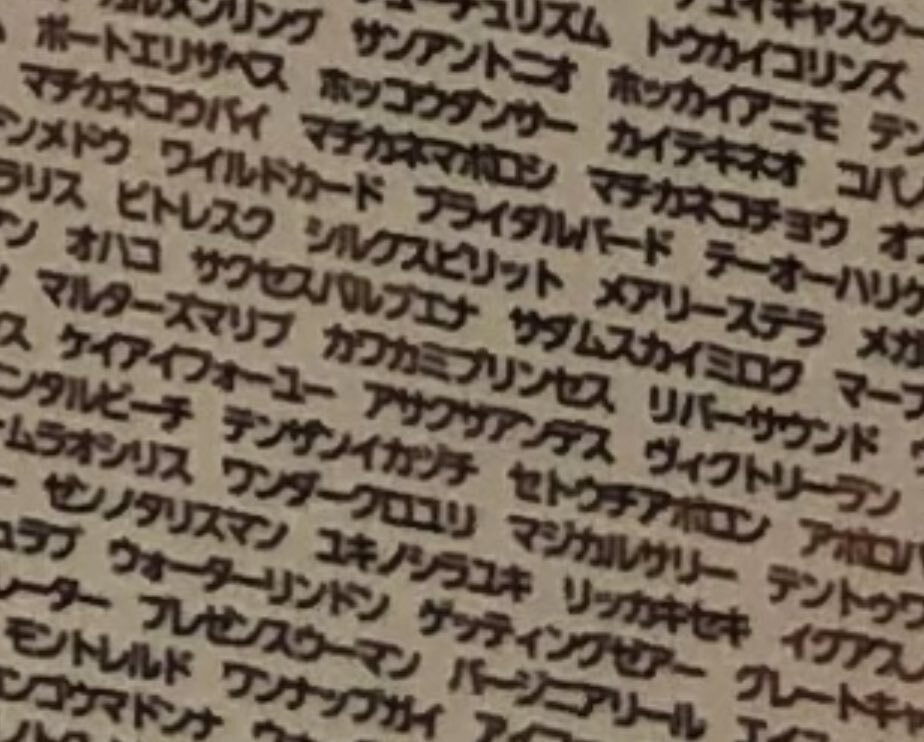 キャスケー
チュリズム トウカイコリンズ
ルメンリング サンアントニオ ホッカイアニモ デン
ポートエリザベス ホッコウダンサー カイテキネオ コパ
マチカネコウバイ マチカネマボロシ マチカネコチョウ オー
ンメドウ ワイルドカード ブライダルバード テーオーハリケ
ラリス ピトレスク シルクスピリット メアリーステラ メガ
ン オハコ サクセスバルブエナ サダムスカイミロク マー
マルターズマリブ カワカミプリンセス リバーサウンド
ス ケイアイフォーユー アサクサアンデス ヴィクトリーラン
ンタルビーチ テンザンイカヅチ セトウチアポロン アポロ
ームラオシリス ワンダークロユリ マジカルサリー デントゥワ
ー ゼンノタリスマン ユキノシラユキ リッカキセキ イグアス
ュラブ ウォーターリンドン ゲッティングゼアー グレートキャ
レーター プレゼンスウーマン バージニアリール エイ
モントレルド ワンナップガイ アイ
ンコウマドンナ ウ